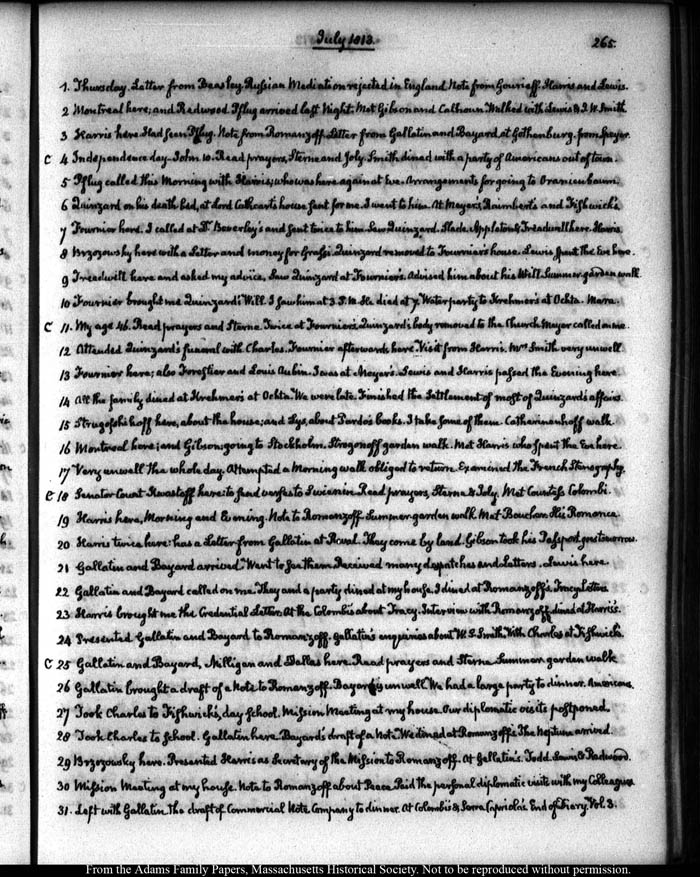 July 1813.
265.
1. Thursday. Letter from Beasley. Russian Mediation rejected in England Note from Gourieff. Harris and Lewis.
2 Montreal here; and Redwood. Pflug arrived last Night. Met Gibson and Calhoun. Walked with Lewis & J. W. Smith
3 Harris here. Had seen Pflug. Note from Romanzoff. Letter from Gallatin and Bayard at Gothenburg. from Speyer.
C 4 Independence day. John 10. Read prayers, Sterne and Joly. Smith dined with a party of Americans out of town.
5 Pflug called this Morning with Harris; who was here again at Eve. Arrangements for going to Oranienbaum.
6 Quinzard on his death-bed, at Lord Cathcart's house sent for me. I went to him. At Meyer's, Raimbert's and Fishwick's.
7 Fournier here. I called at Dr. Beverley's and sent twice to him. Saw Quinzard. Slade, Appleton & Treadwell here. Harris.
8 Brzozowsky here with a Letter and money for Grassi. Quinzard removed to Fournier's house. Lewis spent the Eve here.
9 Treadwell here and asked my advice. Saw Quinzard at Fournier's. Advised him about his Will. Summer garden walk
10 Fournier brought me Quinzard's Will. I saw him at 3. P.M. He died at 7. Water party to Krehmer's at Ochta. Mara.
C 11. My age 46. Read prayers and Sterne. Twice at Fournier's. Quinzard's body removed to the Church. Meyer called on me.
12 Attended Quinzard's funeral with Charles. Fournier afterwards here. Visit from Harris. Mrs. Smith very unwell
13 Fournier here; also Forestier and Louis Aubin. I was at Meyer's. Lewis and Harris passed the Evening here.
14 All the family dined at Krehmer's at Ochta. We were late. Finished the Settlement of most of Quinzard's affairs.
15 Strugofshikoff here, about the house; and Lys, about Pardo's books. I take some of them. Catharinenhoff walk.
16 Montreal here; and Gibson, going to Stockholm. Strogonoff garden walk. Met Harris who spent the Eve here.
17 Very unwell the whole day. Attempted a Morning walk obliged to return. Examined the French Stenography.
C 18 Senator Count Kwastoff here: to send verses to Swienin. Read prayers, Sterne & Joly. Met Countess Colombi.
19 Harris here, Morning and Evening. Note to Romanzoff. Summer garden walk. Met Bouchon. His Romance.
20 Harris twice here: has a Letter from Gallatin at Reval. They come by land. Gibson took his Passport, goes tomorrow.
21 Gallatin and Bayard arrived. Went to see them. Received many despatches and Letters. Lewis here.
22 Gallatin and Bayard called on me. They and a party dined at my house. I dined at Romanzoff's. Tracy Letter
23 Harris brought me the Credential Letter. At the Colombi's about Tracy. Interview with Romanzoff. dined at Harris's.
24 Presented Gallatin and Bayard to Romanzoff. Gallatin's enquiries about W. S. Smith. With Charles at Fishwick.
C 25 Gallatin and Bayard, Milligan and Dallas here. Read prayers and Sterne Summer garden walk
26 Gallatin brought a draft of a Note to Romanzoff. Bayard is unwell. We had a large party to dinner. Americans.
27 Took Charles to Fishwick's, day School. Mission Meeting at my house. Our diplomatic visits postponed.
28 Took Charles to School. Gallatin here. Bayard's draft of a Note. We dined at Romanzoff's. The Neptune arrived.
29 Brzozowsky here. Presented Harris as Secretary of the Mission to Romanzoff. At Gallatin's. Todd. Lewis & Redwood.
30 Mission Meeting at my house. Note to Romanzoff about Peace. Paid the personal diplomatic visits with my Colleagues
31. Left with Gallatin the draft of Commercial Note. Company to dinner. At Colombi's & Serra Capriola's. End of Diary. Vol. 3.
From the Adams Family Papers, Massachusetts Historical Society. Not to be reproduced without permission.